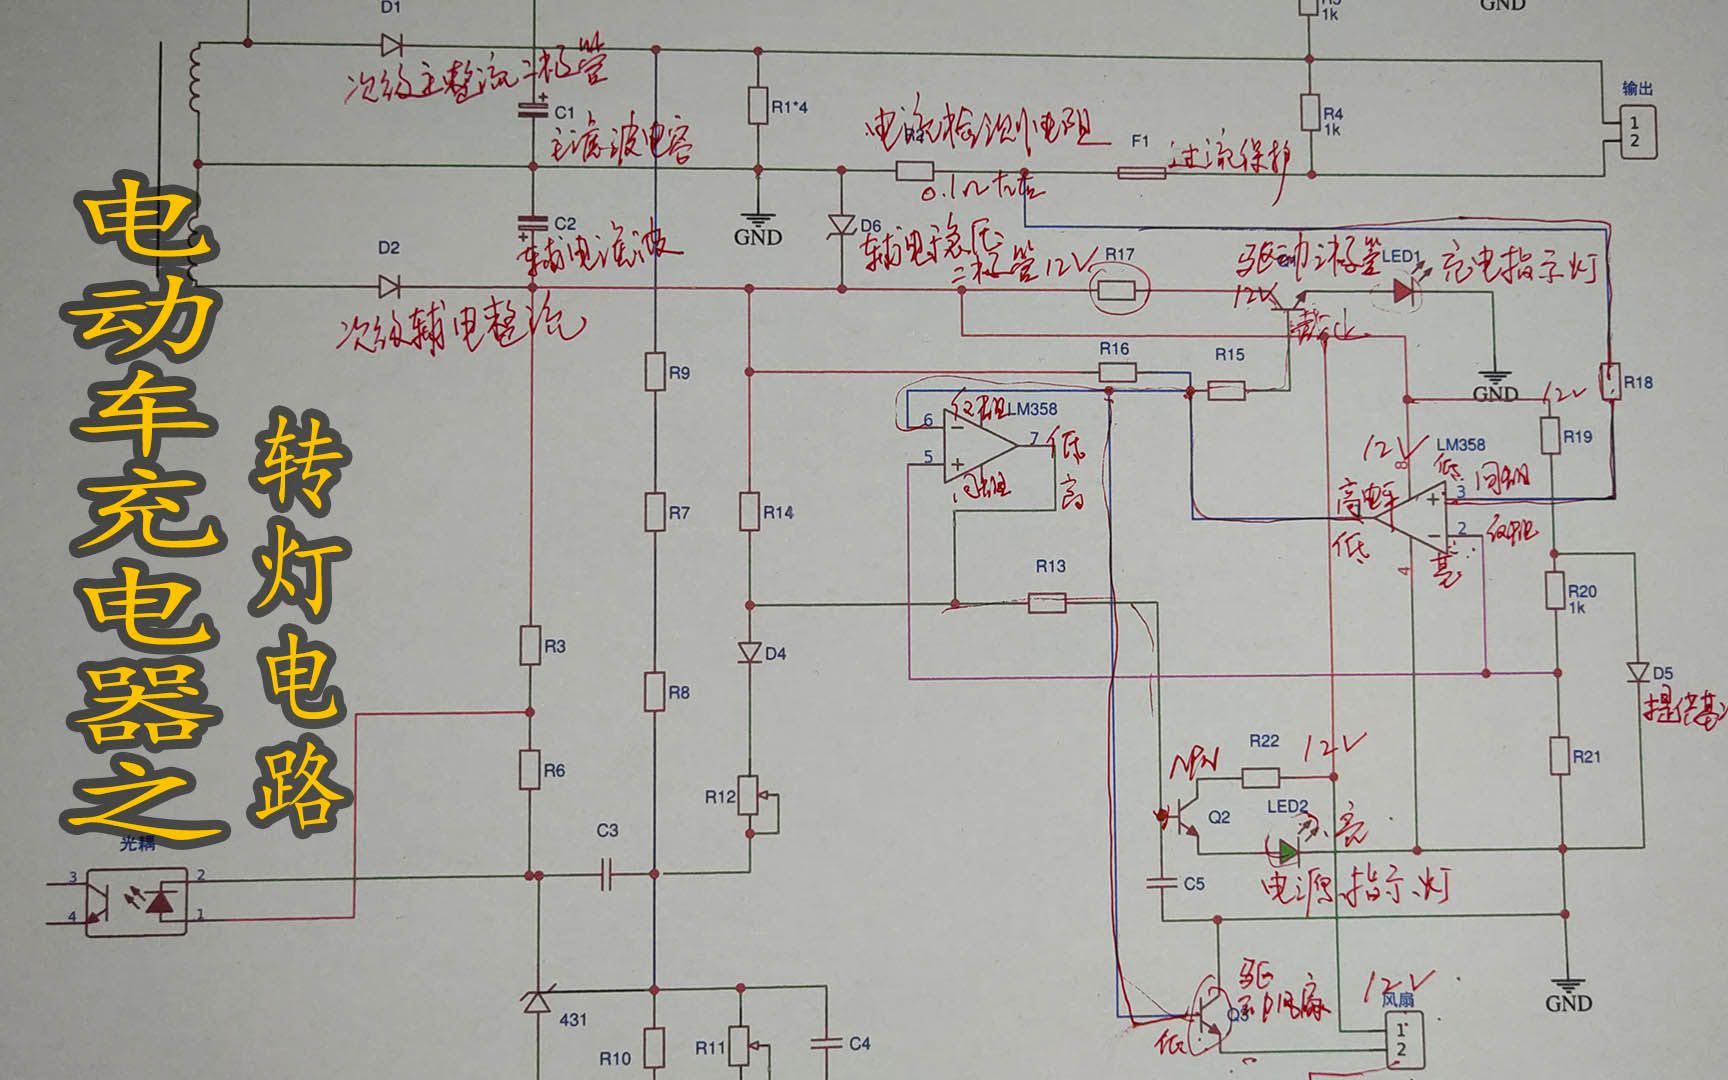 电动车充电器之
转灯电路
D1
R5
1k
GND
次级主整流二极管
C1
主滤波电容
R1*4
电流检测小电阻
F1
过流保护
R4
1k
输出
1
2
0.1Ω左右
C2
GND
D6
D2
辅电滤波
辅电稳压
二极管
12V
R17
驱动三极管
LED1
充电指示灯
12V
截止
次级辅电整流
GND
R9
R16
R15
R18
12V
6
反相
LM358
7
低
5
同相
高
12V
LM358
R19
8
低
3
同相
高电平
低
2
反相
4
高
R7
R14
R13
R20
1k
R3
D4
D5
提供基
R8
R6
R12
NPN
R22
12V
R21
Q2
LED2
亮
C3
C5
电源指示灯
光耦
3
2
4
1
431
驱
动风扇
Q3
低
12V
风扇
1
2
GND
R10
R11
C4